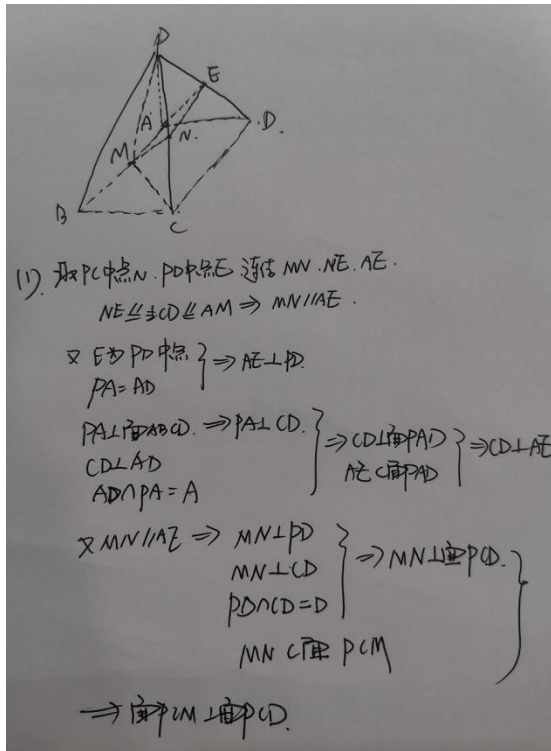 P
E
A
D.
N.
M
B
C
(1). 取PC中点N.PD中点E 连结 MN.NE.AE.
NE≚½CD≚AM⇒MN//AE.
又 E为PD中点
PA=AD } ⇒AE⊥PD.
PA⊥面ABCD. ⇒PA⊥CD.
CD⊥AD
AD∩PA=A } ⇒CD⊥面PAD
AE⊂面PAD } ⇒CD⊥AE
又MN//AE ⇒ MN⊥PD
MN⊥CD
PD∩CD=D } ⇒MN⊥面PCD.
MN⊂面PCM }
⇒面PCM⊥面PCD.